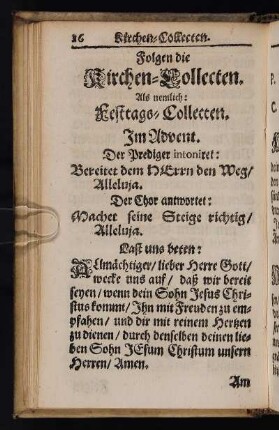 86 Kirchen-Collecten.
Folgen die
Kirchen-Collecten.
Als nemlich:
Festtags-Collecten.
Im Advent.
Der Prediger intoniret:
Bereitet dem HErrn den Weg/
Alleluja.
Der Chor antwortet:
Machet seine Steige richtig/
Alleluja.
Last uns beten:
Allmächtiger/ lieber Herre Gott/
wecke uns auf/ daß wir bereit
seyen/ wenn dein Sohn Jesus Chri-
stus kommt/ Ihn mit Freuden zu em-
pfahen/ und dir mit reinem Hertzen
zu dienen/ durch denselben deinen lie-
ben Sohn JEsum Christum unsern
Herren/ Amen.
Am